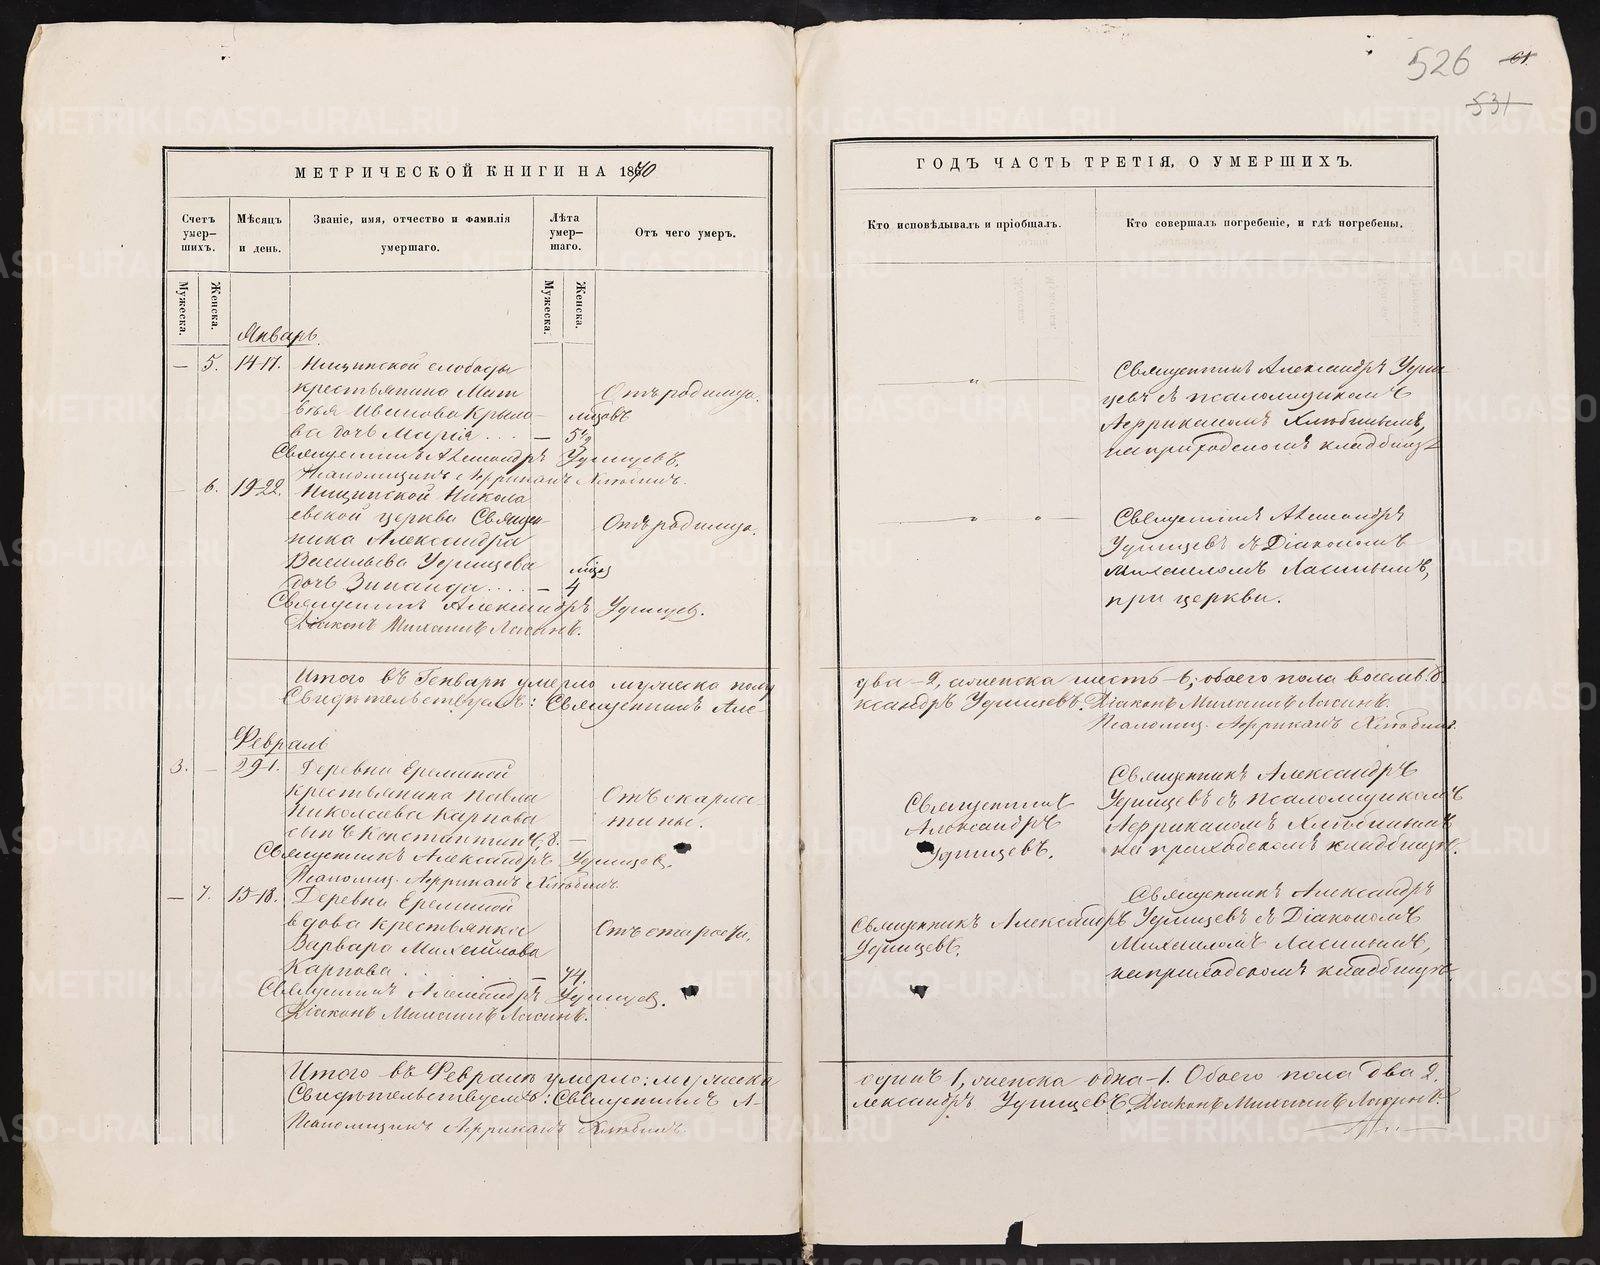 526 61
531
МЕТРИЧЕСКОЙ КНИГИ НА 1870
ГОДЪ ЧАСТЬ ТРЕТІЯ, О УМЕРШИХЪ.
Счетъ умер-шихъ.
Мѣсяцъ и день.
Званіе, имя, отчество и фамилія умершаго.
Лѣта умер-шаго.
Отъ чего умеръ.
Кто исповѣдывалъ и пріобщалъ.
Кто совершалъ погребеніе, и гдѣ погребены.
Мужеска.
Женска.
Мужеска.
Женска.
Январь.
— 5. 14-17. Ницинской слободы
крестьянина Мат
вѣя Иванова Крыло-
ва дочь Марія . . . —
мѣсяцовъ
5½
Отъ родимца.
Священникъ Александръ Удинцевъ.
Псаломщикъ Африканъ Хлюбинъ.
Священникъ Александръ Удин
цевъ съ псаломщикомъ
Африканомъ Хлюбинымъ,
на приходскомъ кладбищѣ
— 6. 19-22. Ницинской Никола
евской церкви Священ-
ника Александра
Васильева Удинцева
дочь Зинаида . . . . — 4
Отъ родимца.
Священникъ Александръ Удинцевъ.
Діаконъ Михаилъ Ласинъ.
Священникъ Александръ
Удинцевъ съ Діакономъ
Михаиломъ Ласинымъ,
при церкви.
Итого въ Генварѣ умерло мужеска полу
два - 2, женска шесть - 6, обоего пола восемь 8.
Свидѣтельствуемъ: Священникъ Але-
ксандръ Удинцевъ. Діаконъ Михаилъ Ласинъ.
Псаломщ. Африканъ Хлюбинъ.
Февраль
3. — 29-1. Деревни Ереминой
крестьянина Павла
Николаева Карпова
сынъ Константинъ, 8. —
Отъ скарла-
тины.
Священникъ Александръ Удинцевъ.
Псаломщ. Африканъ Хлюбинъ.
Священникъ
Александръ
Удинцевъ.
Священникъ Александръ
Удинцевъ съ псаломщикомъ
Африканомъ Хлюбинымъ
на приходскомъ кладбищѣ.
— 7. 15-18. Деревни Ереминой
вдова крестьянка
Варвара Михайлова
Карпова . . . — 74.
Отъ старости.
Священникъ Александръ Удинцевъ.
Діаконъ Михаилъ Ласинъ.
Священникъ Александръ
Удинцевъ.
Священникъ Александръ
Удинцевъ съ Діакономъ
Михаиломъ Ласинымъ,
на приходскомъ кладбищѣ
Итого въ Февралѣ умерло: мужеска
одинъ 1, женска одна - 1. Обоего пола два 2.
Свидѣтельствуемъ: Священникъ А-
лександръ Удинцевъ. Діаконъ Михаилъ Ласинъ.
Псаломщикъ Африканъ Хлюбинъ.
METRIKI.GASO-URAL.RU